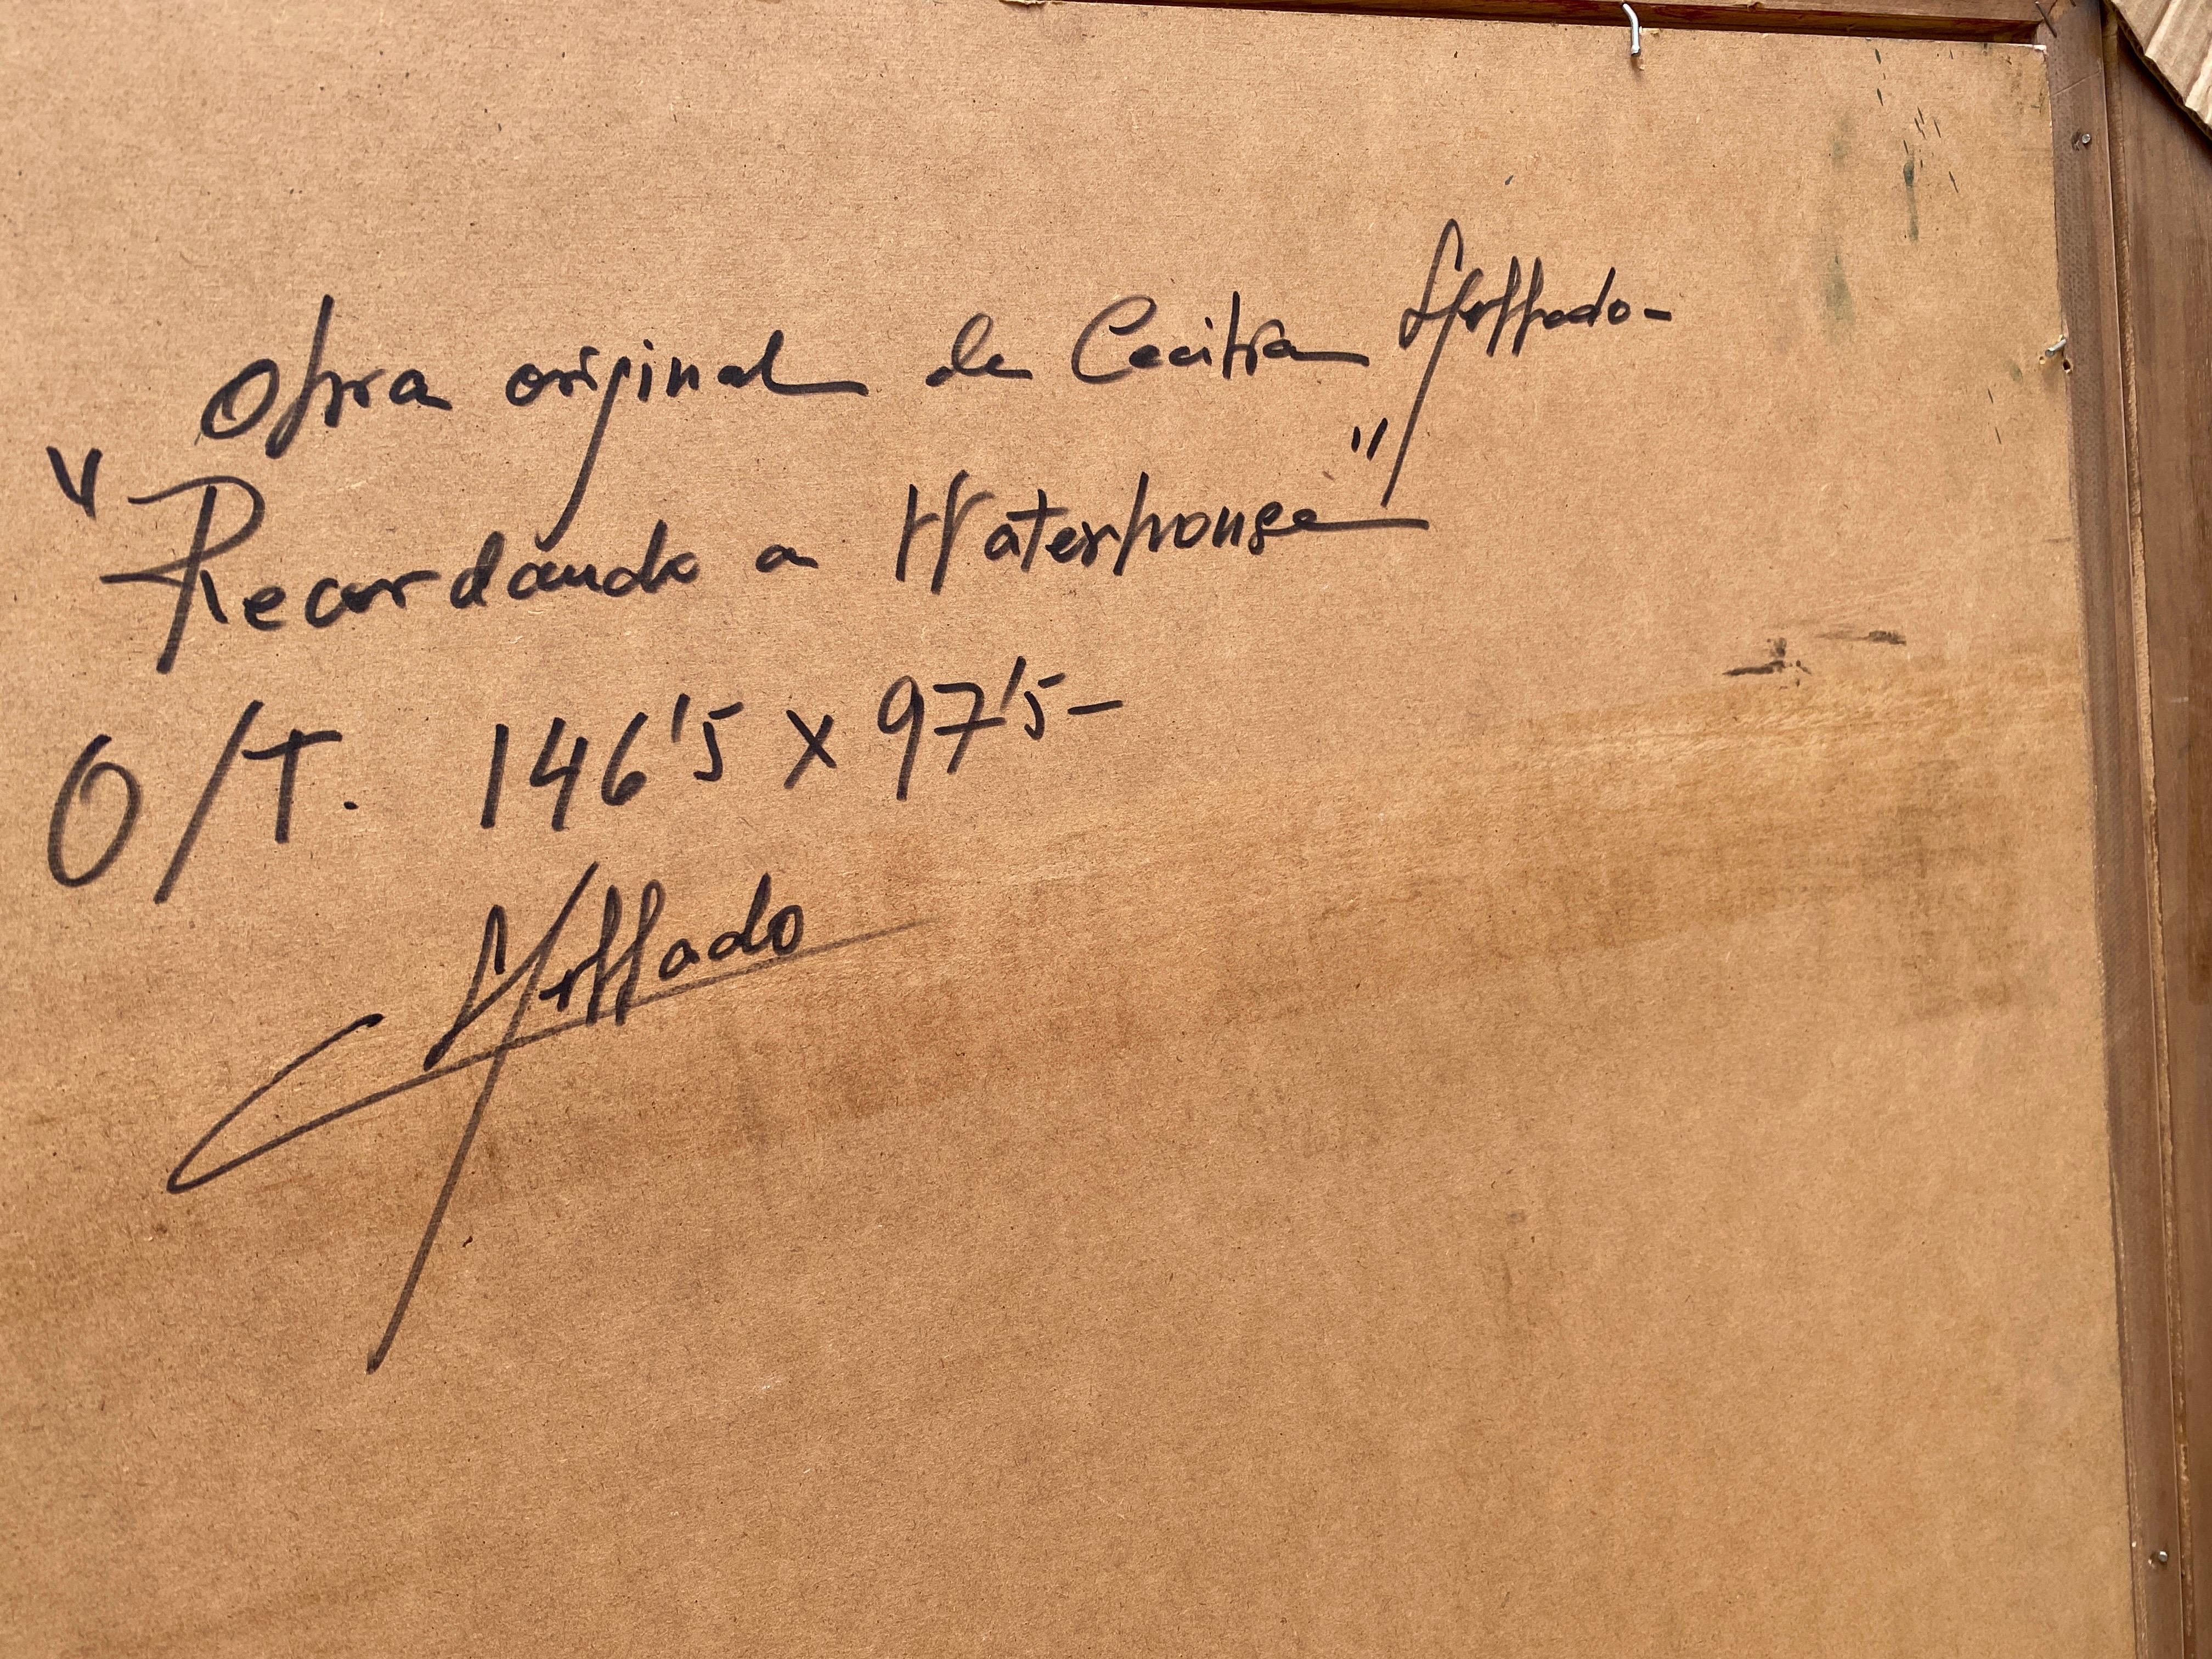 Obra original de Cecilia
"Recordando a Waterhouse"
O/T. 146'5 x 97'5-